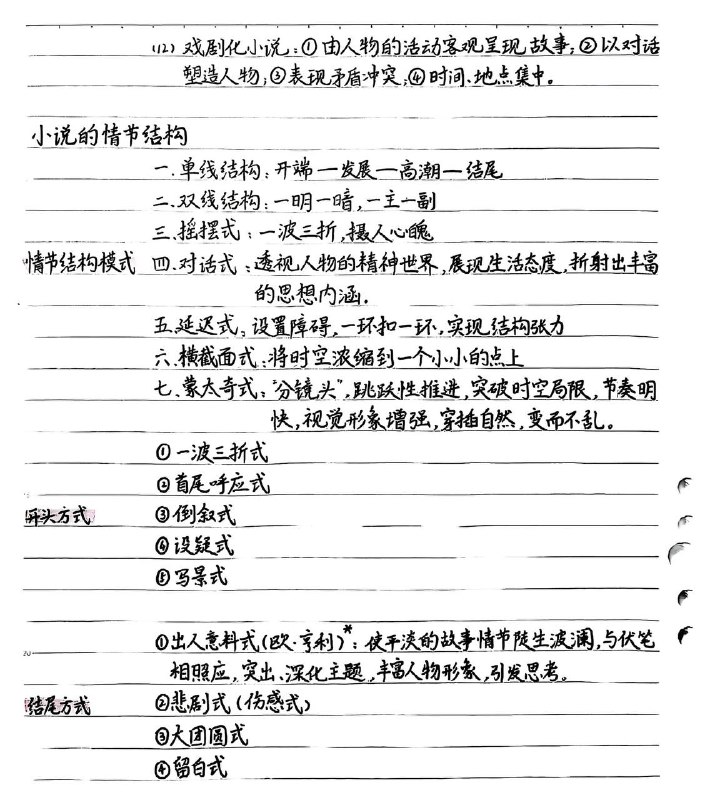 (12) 戏剧化小说：①由人物的活动客观呈现故事；②以对话
塑造人物；③表现矛盾冲突；④时间、地点集中。
小说的情节结构
一.单线结构：开端—发展—高潮—结尾
二.双线结构：一明一暗，一主一副
三.摇摆式：一波三折，摄人心魄
情节结构模式 四.对话式：透视人物的精神世界，展现生活态度，折射出丰富
的思想内涵.
五.延迟式：设置障碍，一环扣一环，实现结构张力
六.横截面式：将时空浓缩到一个小小的点上
七.蒙太奇式：“分镜头”，跳跃性推进，突破时空局限，节奏明
快，视觉形象增强，穿插自然，变而不乱。
①一波三折式
②首尾呼应式
开头方式 ③倒叙式
④设疑式
⑤写景式
①出人意料式(欧·亨利)*：使平淡的故事情节陡生波澜，与伏笔
相照应，突出、深化主题，丰富人物形象，引发思考。
结尾方式 ②悲剧式(伤感式)
③大团圆式
④留白式